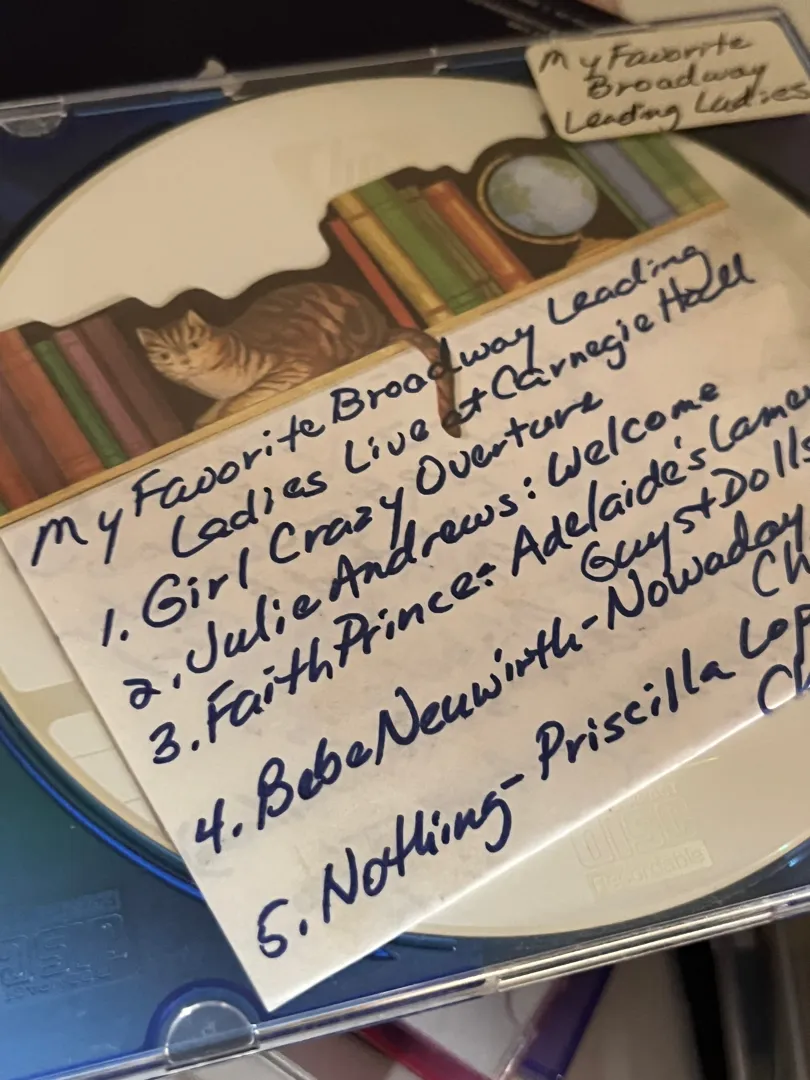 My Favorite
Broadway
Leading Ladies
My Favorite Broadway Leading
Ladies Live at Carnegie Hall
1. Girl Crazy Overture
2. Julie Andrews: Welcome
3. Faith Prince: Adelaide's Lamen
Guys + Dolls
4. Bebe Neuwirth - Nowaday
Ch
5. Nothing - Priscilla Lop
Ch
Recordable